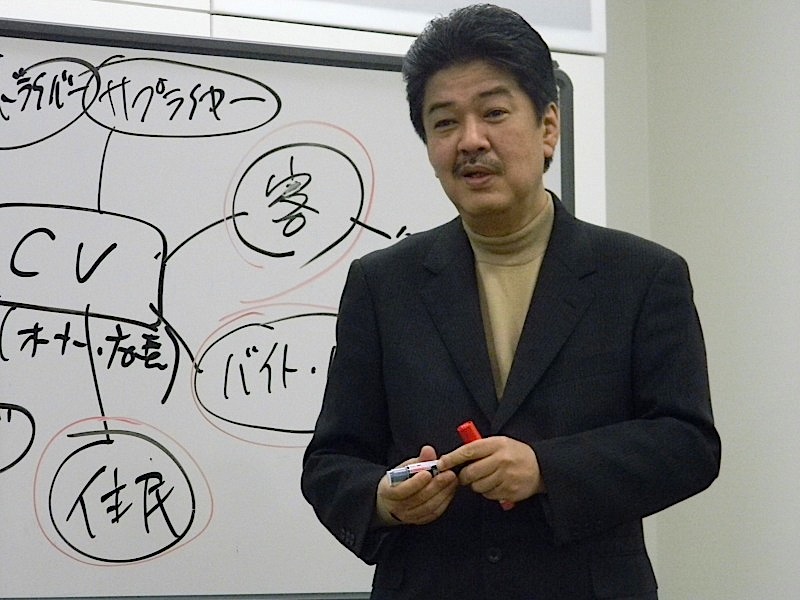 ドライバー
サプライヤー
客
CV
(オーナー・店長)
バイト・
住民